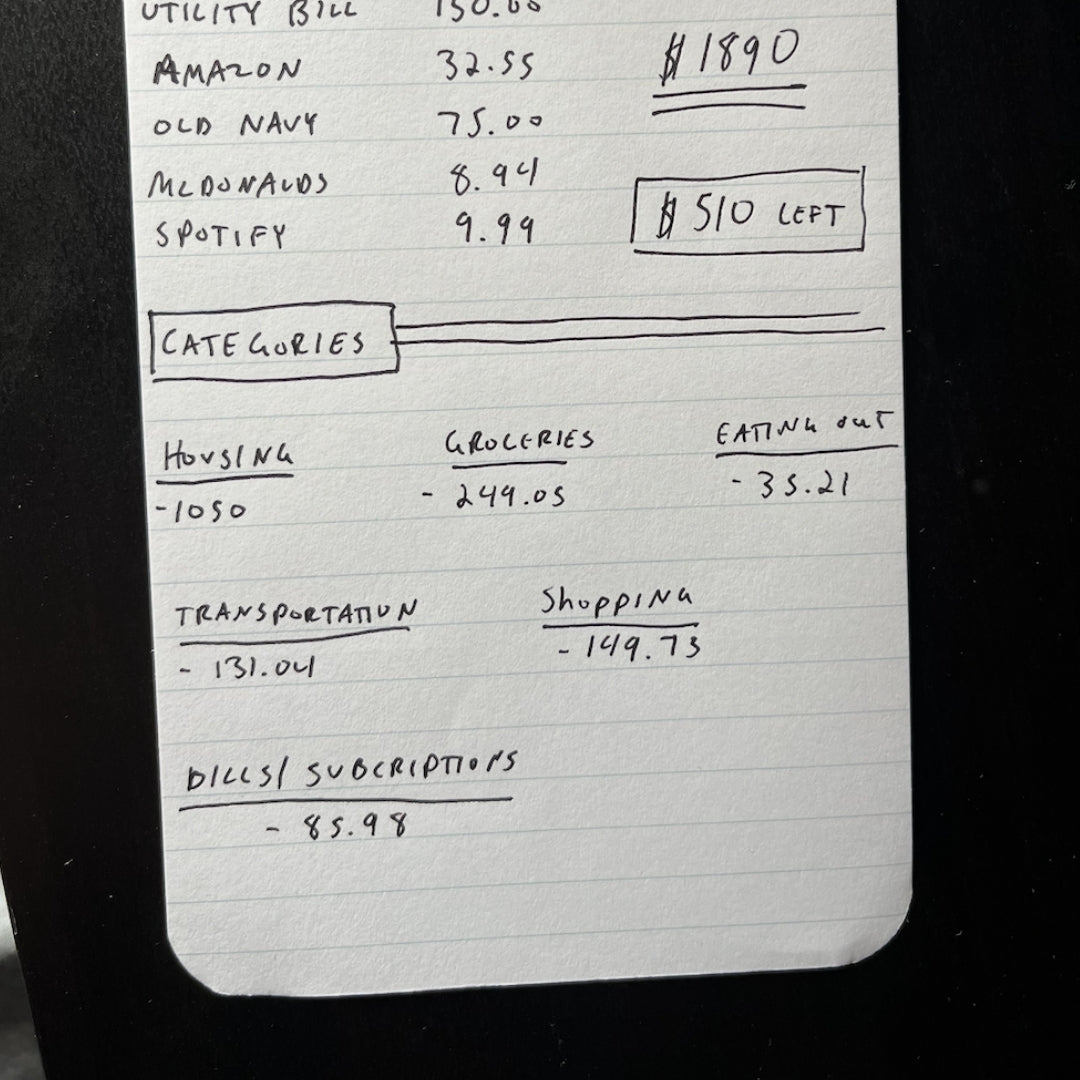 UTILITY BILL 150.00
AMAZON 32.55 $1890
OLD NAVY 75.00
MCDONALDS 8.94
SPOTIFY 9.99 $510 LEFT
CATEGORIES
HOUSING GROCERIES EATING OUT
-1050 - 249.05 - 35.21
TRANSPORTATION ShoPPING
- 131.04 - 149.73
BILLS/ SUBCRIPTIONS
- 85.98